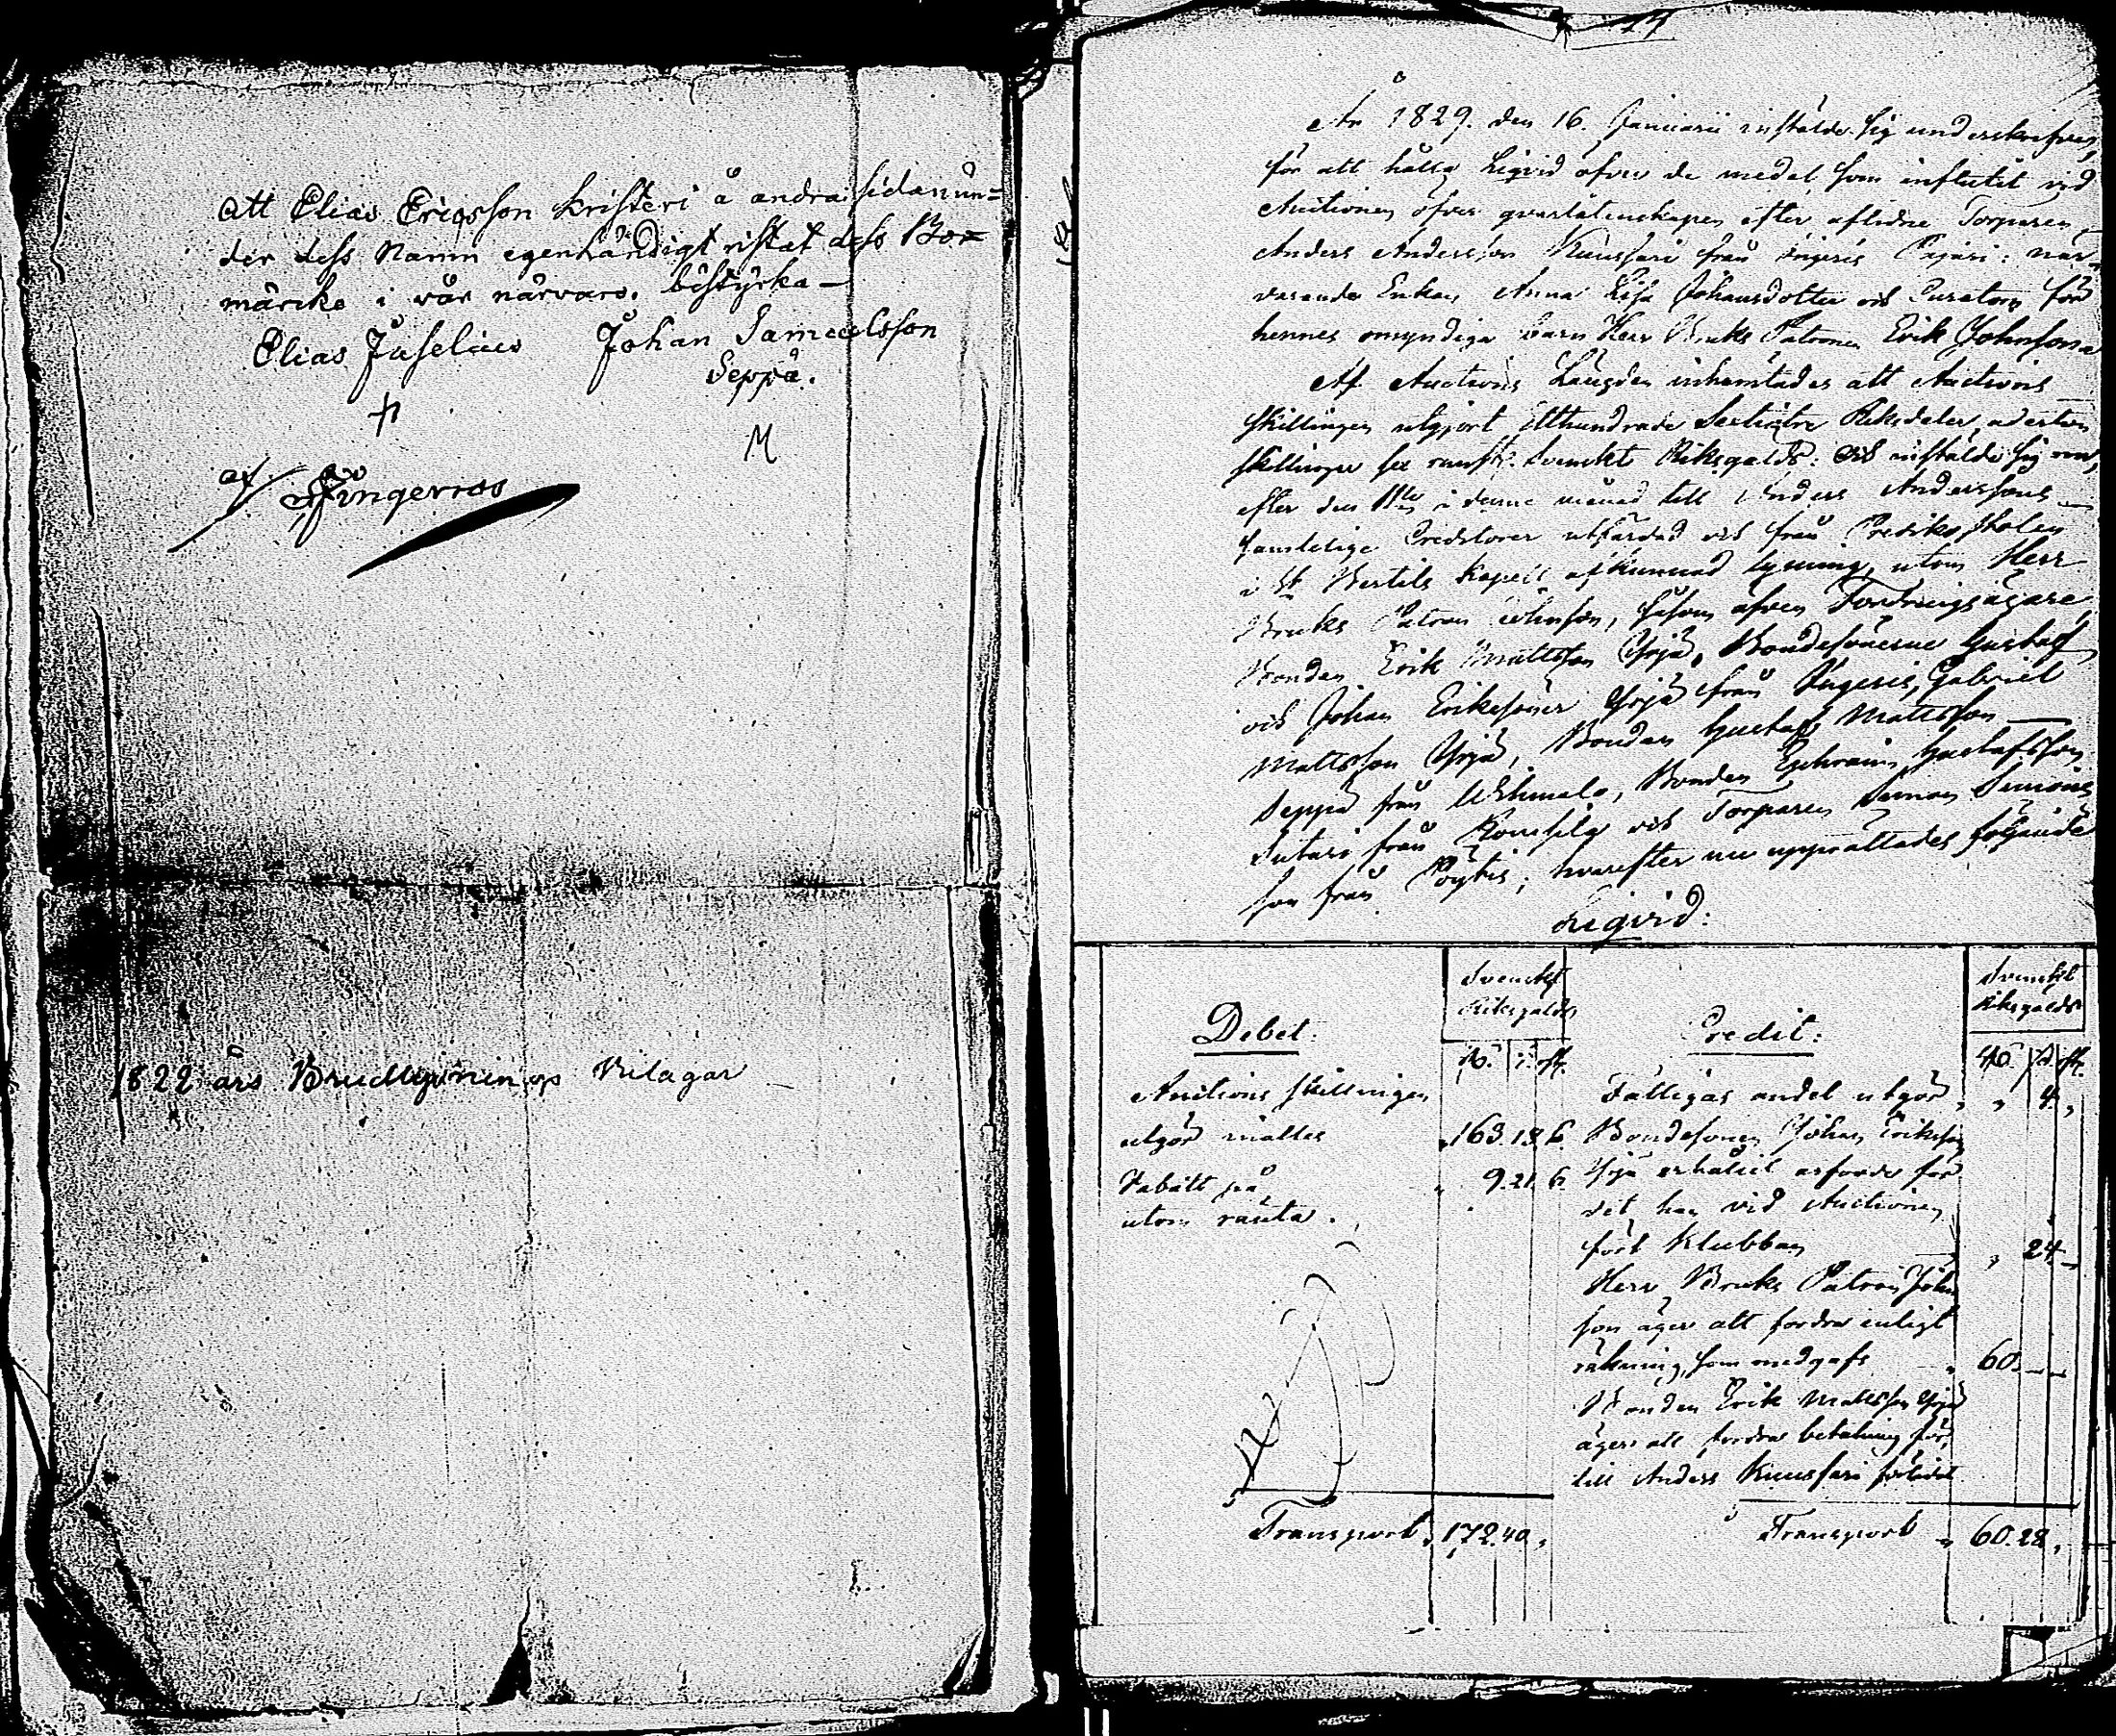 att Elias Ericsson Kristeri å andra sidan un=
der dess Namn egenhändigt ristat dess Bo=
märcke i vår närvaro, bestyrka —
Elias Juselius Johan Samuelsson
Seppä.
M
af Ningernas
1822 års Bilagor
17
År 1829. den 16. Januarii instälde sig undersknefven,
för att hålla Liqvid öfver de medel som influtit vid
Auctionen öfver qvarlåtenskapen efter aflidne Torparen
Anders Andersson Kuusari från Pajari: när-
varande Enkan Anna Lisa Johansdotter och Curatorn för
hennes omyndiga barn Herr Bruks Patronen Erik Johnson
Af Auctions Längden inhemtades att Auctions
Skillingen utgjort Etthundrade Sextiotre Riksdaler, aderton
skillingar sex runst. Svenskt Riksgälds: och instälde sig nu,
efter den i denne månad till Anders Anderssons
samtelige Creditorer utfärdad och från Predikostolen
i St Bertils Kapell afkunnad lysning, utom Herr
Bruks Patron Johnson, såsom äfven Fordringsägare,
Bonden Erik Mattsson Yrjä, Bondesönerne Gustaf
och Johan Eriksöner Yrjä från Ingeris, Gabriel
Mattsson Yrjä, Bonden Gustaf Mattsson
Seppä från Uhimala, Bonden Ephraim Gustafsson
Sutari från och Torparen Simon Simons
son från Pöytis; hvarefter nu upprättades följande
Liqvid:
Debet: Svenskt Riksgälds
Auctions skillingen
utgör 163. 18. 6.
Rabatt på 9. 21. 6.
utom ränta.
Transport 172. 40.
Credit: Svenskt Riksgälds
Fattigas andel utgör 4.
Bondesonen Johan Eriksson
Yrjä arfvode för
det han vid Auctionen
fört Klubban 24.
Herr Bruks Patron John
son äger att fordra enligt
räkning, som medgafs 60.
Bonden Erik Mattsson Yrjä
äger att fordra betalning för
till Anders Kuusari
Transport 60. 28.